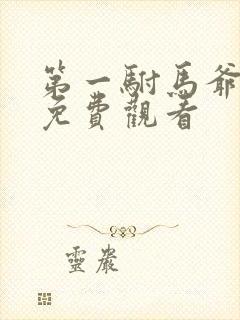 第一駙馬爺
免費觀看
靈巖